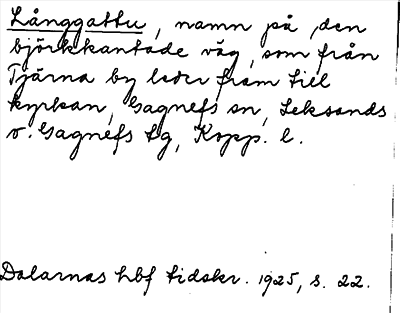 Långgattu, namn på den
björkkantade väg, som från
Tjärna by leder fram till
kyrkan, Gagnefs sn, Leksands
o. Gagnefs tg, Kopp. l.
Dalarnas hbf tidskr. 1925, s. 22.